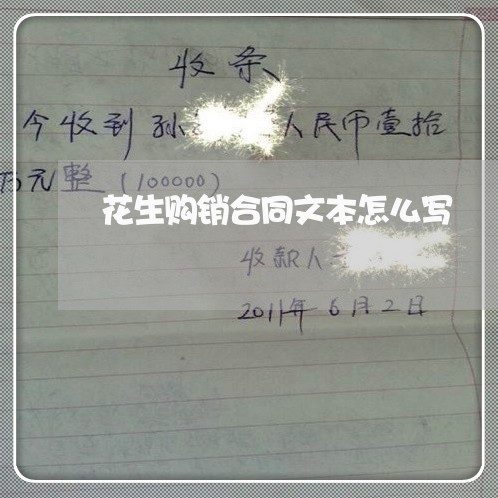 收条
今收到孙 人民币壹拾
万元整(100000)
花生购销合同文本怎么写
收款人
2011年6月2日